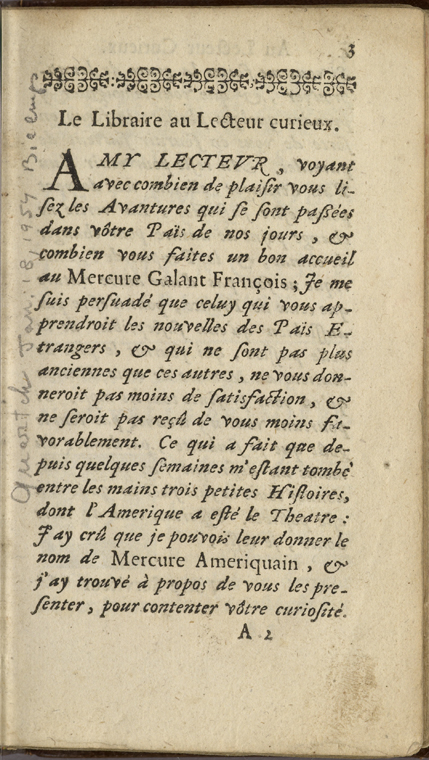 3
Le Libraire au Lecteur curieux.
AMY LECTEVR, voyant
avec combien de plaiſir vous li-
ſez les Avantures qui ſe ſont paßées
dans vôtre Païs de nos jours, &
combien vous faites un bon accueil
au Mercure Galant François; Je me
ſuis perſuadé que celuy qui vous ap-
prendroit les nouvelles des Païs E-
trangers, & qui ne ſont pas plus
anciennes que ces autres, ne vous don-
neroit pas moins de ſatisfaction, &
ne ſeroit pas reçû de vous moins fa-
vorablement. Ce qui a fait que de-
puis quelques ſemaines m'eſtant tombé
entre les mains trois petites Hiſtoires,
dont l'Amerique a eſté le Theatre:
J'ay crû que je pouvois leur donner le
nom de Mercure Ameriquain, &
j'ay trouvé à propos de vous les pre-
ſenter, pour contenter vôtre curioſité.
A 2
Jan. 18, 1954